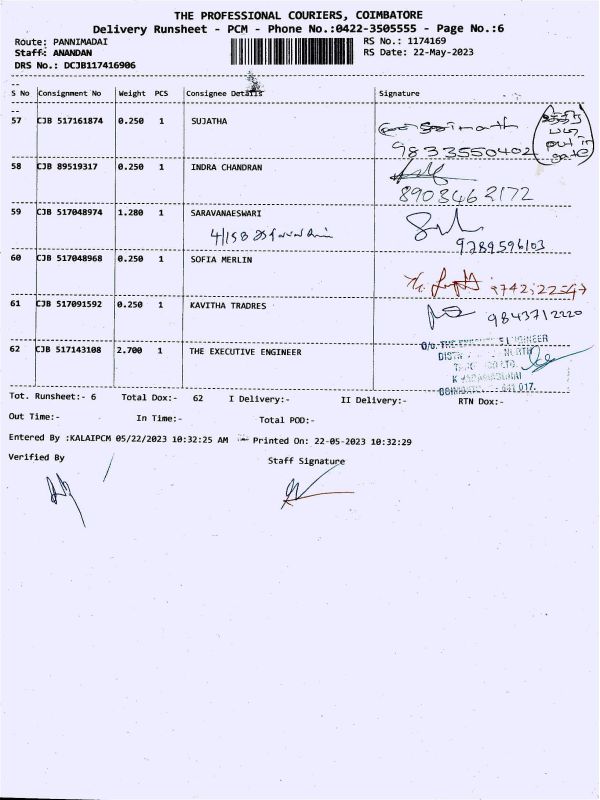 THE PROFESSIONAL COURIERS, COIMBATORE
Delivery Runsheet - PCM - Phone No.:0422-3505555 - Page No.:6
Route: PANNIMADAI RS No.: 1174169
Staff: ANANDAN RS Date: 22-May-2023
DRS No.: DCJB117416906
S No Consignment No Weight PCS Consignee Details Signature
57 CJB 517161874 0.250 1 SUJATHA
put in
gate
9833550402
58 CJB 89519317 0.250 1 INDRA CHANDRAN
8903462172
59 CJB 517048974 1.280 1 SARAVANAESWARI
4/15B
9789596103
60 CJB 517048968 0.250 1 SOFIA MERLIN
61 CJB 517091592 0.250 1 KAVITHA TRADRES
9843712220
62 CJB 517143108 2.700 1 THE EXECUTIVE ENGINEER
O/o. THE ENGINEER
NORTH
641 017.
Tot. Runsheet:- 6 Total Dox:- 62 I Delivery:- II Delivery:- RTN Dox:-
Out Time:- In Time:- Total POD:-
Entered By :KALAIPCM 05/22/2023 10:32:25 AM Printed On: 22-05-2023 10:32:29
Verified By Staff Signature